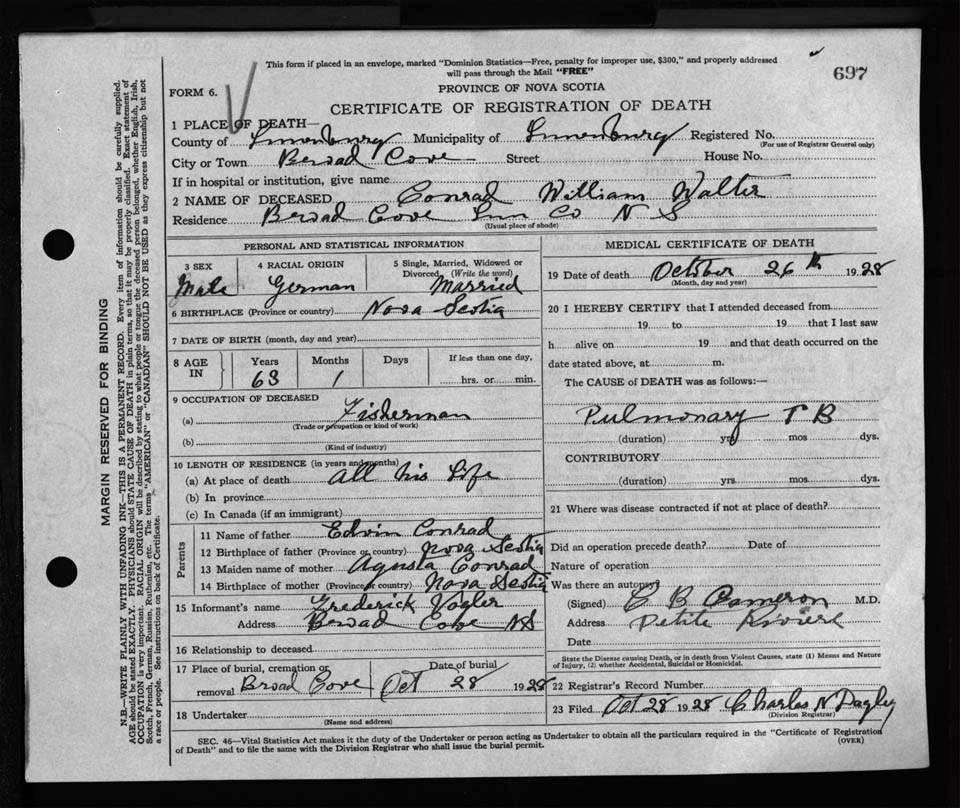 This form if placed in an envelope, marked "Dominion Statistics—Free, penalty for improper use, $300," and properly addressed
will pass through the Mail "FREE"
697
FORM 6.
PROVINCE OF NOVA SCOTIA
CERTIFICATE OF REGISTRATION OF DEATH
1 PLACE OF DEATH—
County of Lunenburg Municipality of Lunenburg Registered No.
(For use of Registrar General only)
City or Town Broad Cove Street House No.
If in hospital or institution, give name
2 NAME OF DECEASED Conrad William Walter
Residence Broad Cove Lun Co N S
(Usual place of abode)
PERSONAL AND STATISTICAL INFORMATION
3 SEX 4 RACIAL ORIGIN 5 Single, Married, Widowed or
Divorced (Write the word)
Male German Married
6 BIRTHPLACE (Province or country) Nova Scotia
7 DATE OF BIRTH (month, day and year)
8 AGE IN Years Months Days If less than one day,
63 1 hrs. or min.
9 OCCUPATION OF DECEASED
(a) Fisherman
(Trade or occupation or kind of work)
(b)
(Kind of industry)
10 LENGTH OF RESIDENCE (in years and months)
(a) At place of death all his Life
(b) In province
(c) In Canada (if an immigrant)
Parents
11 Name of father Edwin Conrad
12 Birthplace of father (Province or country) Nova Scotia
13 Maiden name of mother Agusta Conrad
14 Birthplace of mother (Province or country) Nova Scotia
15 Informant's name Frederick Vogler
Address Broad Cove NS
16 Relationship to deceased
17 Place of burial, cremation or Date of burial
removal Broad Cove Oct 28 1928
18 Undertaker
(Name and address)
MEDICAL CERTIFICATE OF DEATH
19 Date of death October 26th 1928
(Month, day and year)
20 I HEREBY CERTIFY that I attended deceased from
19 to 19 that I last saw
h alive on 19 and that death occurred on the
date stated above, at m.
The CAUSE of DEATH was as follows:—
Pulmonary T B
(duration) yrs mos dys.
CONTRIBUTORY
(duration) yrs mos dys.
21 Where was disease contracted if not at place of death?
Did an operation precede death? Date of
Nature of operation
Was there an autopsy?
(Signed) C B Cameron M.D.
Address Petite Riviere
Date
State the Disease causing Death, or in death from Violent Causes, state (1) Means and Nature
of Injury, (2) whether Accidental, Suicidal or Homicidal.
22 Registrar's Record Number
23 Filed Oct 28 1928 Charles N Dagley
(Division Registrar)
SEC. 46—Vital Statistics Act makes it the duty of the Undertaker or person acting as Undertaker to obtain all the particulars required in the "Certificate of Registration
of Death" and to file the same with the Division Registrar who shall issue the burial permit.
(OVER)
MARGIN RESERVED FOR BINDING
N.B.—WRITE PLAINLY WITH UNFADING INK—THIS IS A PERMANENT RECORD. Every item of information should be carefully supplied.
AGE should be stated EXACTLY. PHYSICIANS should STATE CAUSE OF DEATH in plain terms, so that it may be properly classified. Exact statement of
OCCUPATION is very important. RACIAL ORIGIN will be described by stating to what people or tongue the deceased person belonged, whether English, Irish,
Scotch, French, German, Russian, Ruthenian, etc. The terms "AMERICAN" or "CANADIAN" SHOULD NOT BE USED as they express citizenship but not
a race or people. See instructions on back of Certificate.